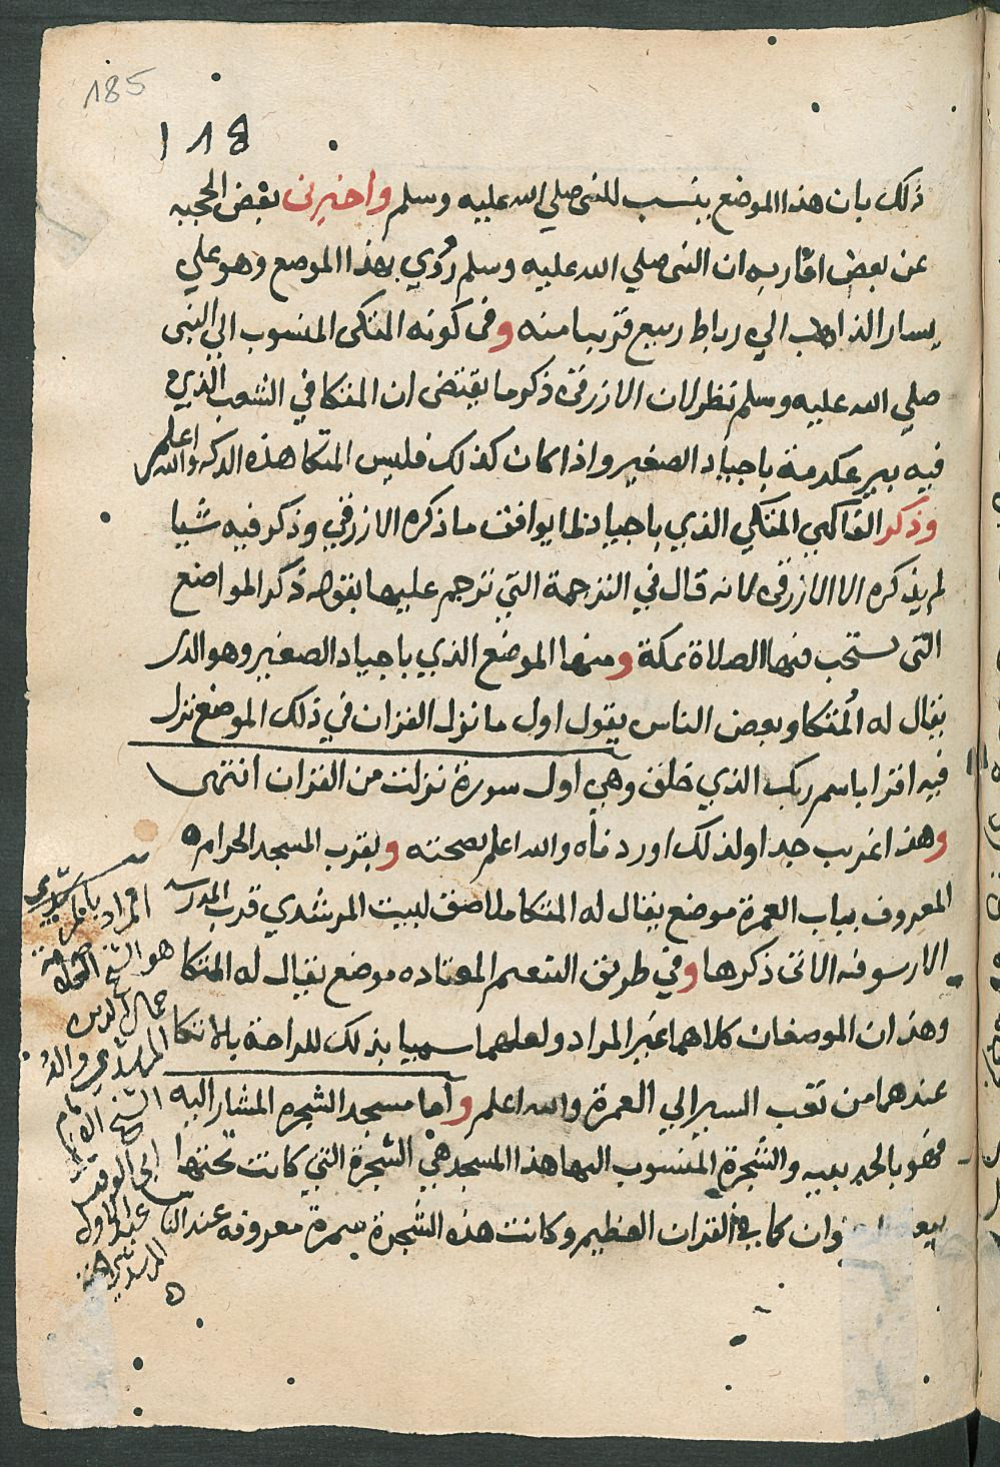 185
118
ذلك بان هذا الموضع ينسب للنبى صلي الله عليه وسلم واخبرنى بعض الحجبه
عن بعض اقاربه ان النبى صلي الله عليه وسلم رُؤي بهذا الموضع وهو علي
يسار الذاهب الي رباط ربيع قريبا منه وفى كونه المتكى المنسوب الي النبى
صلي الله عليه وسلم نظر لان الازرقى ذكر ما يقتضى ان المتكا في الشعب الذي
فيه بير عكرمة باجياد الصغير واذا كان كذلك فليس المتكا هذه الدكه والله اعلم
وذكر الفاكهي المتكي الذي باجياد بما يوافق ما ذكره الازرقي وذكر فيه شيا
لم يذكره الا الازرقى لانه قال في الترجمة التي ترجم عليها بقوله ذكر المواضع
التى تستحب فيها الصلاة بمكة ومنها الموضع الذي باجياد الصغير وهو الذى
يقال له المتكا وبعض الناس يقول اول ما نزل القران في ذلك الموضع نزل
فيه اقرا باسم ربك الذي خلق وهي اول سورة نزلت من القران انتهى
وهذا غريب جدا ولذلك اوردناه والله اعلم بصحته وبقرب المسجد الحرام
المعروف بباب العمرة موضع يقال له المتكا ملاصق لبيت المرشدي قرب المدرسه
الارسوفيه الاتى ذكرها وفي طريق التنعيم المعتاده موضع يقال له المتكا
وهذان الموضعان كلاهما غير المراد ولعلهما سميا بذلك للراحة بالاتكا
عندهما من تعب السير الي العمرة والله اعلم واما مسجد الشجره المشار اليه
فهو بالحديبيه والشجرة المنسوب اليها هذا المسجد هي الشجرة التي كانت تحتها
وان كما في القران العظيم وكانت هذه الشجرة سمرة معروفه عند النا
المراد
هو الشيخ
جمال الدين
المرشدي والله
الشيخ الامام
عبد الاول
المرشدي